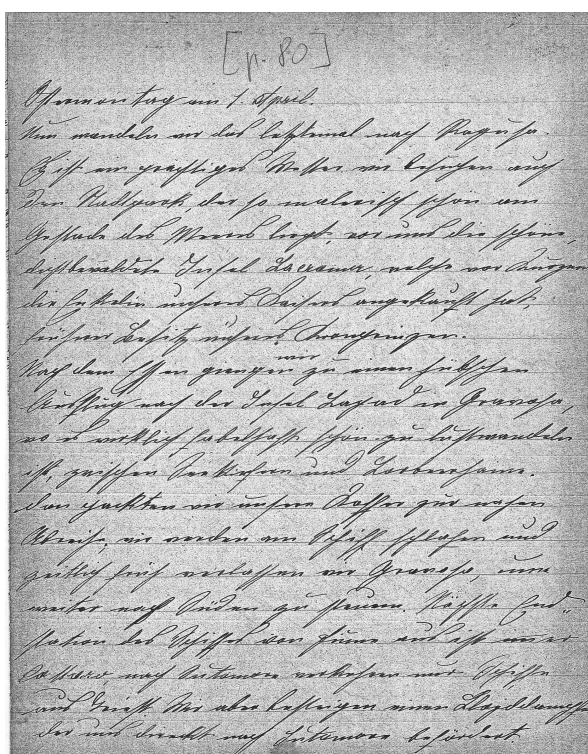 [p. 80]
Ostermontag am 1. April.
Nun wandeln wir das letztemal nach Ragusa.
Es ist ein prächtiges Wetter wir besuchen auch
den Stadtpark, der so malerisch schön am
Gestade des Meeres liegt, vor uns die schöne,
dichtbewaldete Insel Lacroma, welche vor Kurzem
die Enkelin unseres Kaisers angekauft hat,
früherer Besitz unseres Kronprinzen.
wir
Nach dem Essen giengen zu einen hübschen
Ausflug nach der Insel Lapad in Gravosa,
wo es wirklich fabelhaft schön zu lustwandeln
ist, zwischen und Lorbeerbäume.
dan packten wir unsere Koffer zur nahen
Abreise, wir werden am Schiff schlafen und
zeitlich früh verlassen wir Gravosa, um
weiter nach Süden zu steuern. Nächste End-
station des Schiffes von Fiume aus ist
Cattaro, nach Antivari verkehren nur Schiffe
aus Triest. Wir aber besteigen einen Lloyddampfer
der uns direckt nach befördert